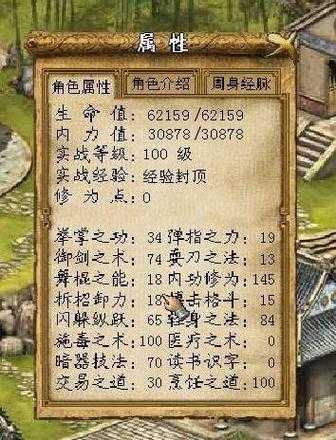 属 性
角色属性 角色介绍 周身经脉
生 命 值：62159/62159
内 力 值：30878/30878
实战等级：100 级
实战经验：经验封顶
修 为 点：0
拳掌之功：34 弹指之力：19
御剑之术：74 耍刀之法：13
舞棍之能：18 内功修为：145
拆招卸力：18 击格斗：15
闪躲纵跃：65 轻身之法：84
施毒之术：100 医疗之术：0
暗器技法：70 读书识字：0
交易之道：30 烹饪之道：100